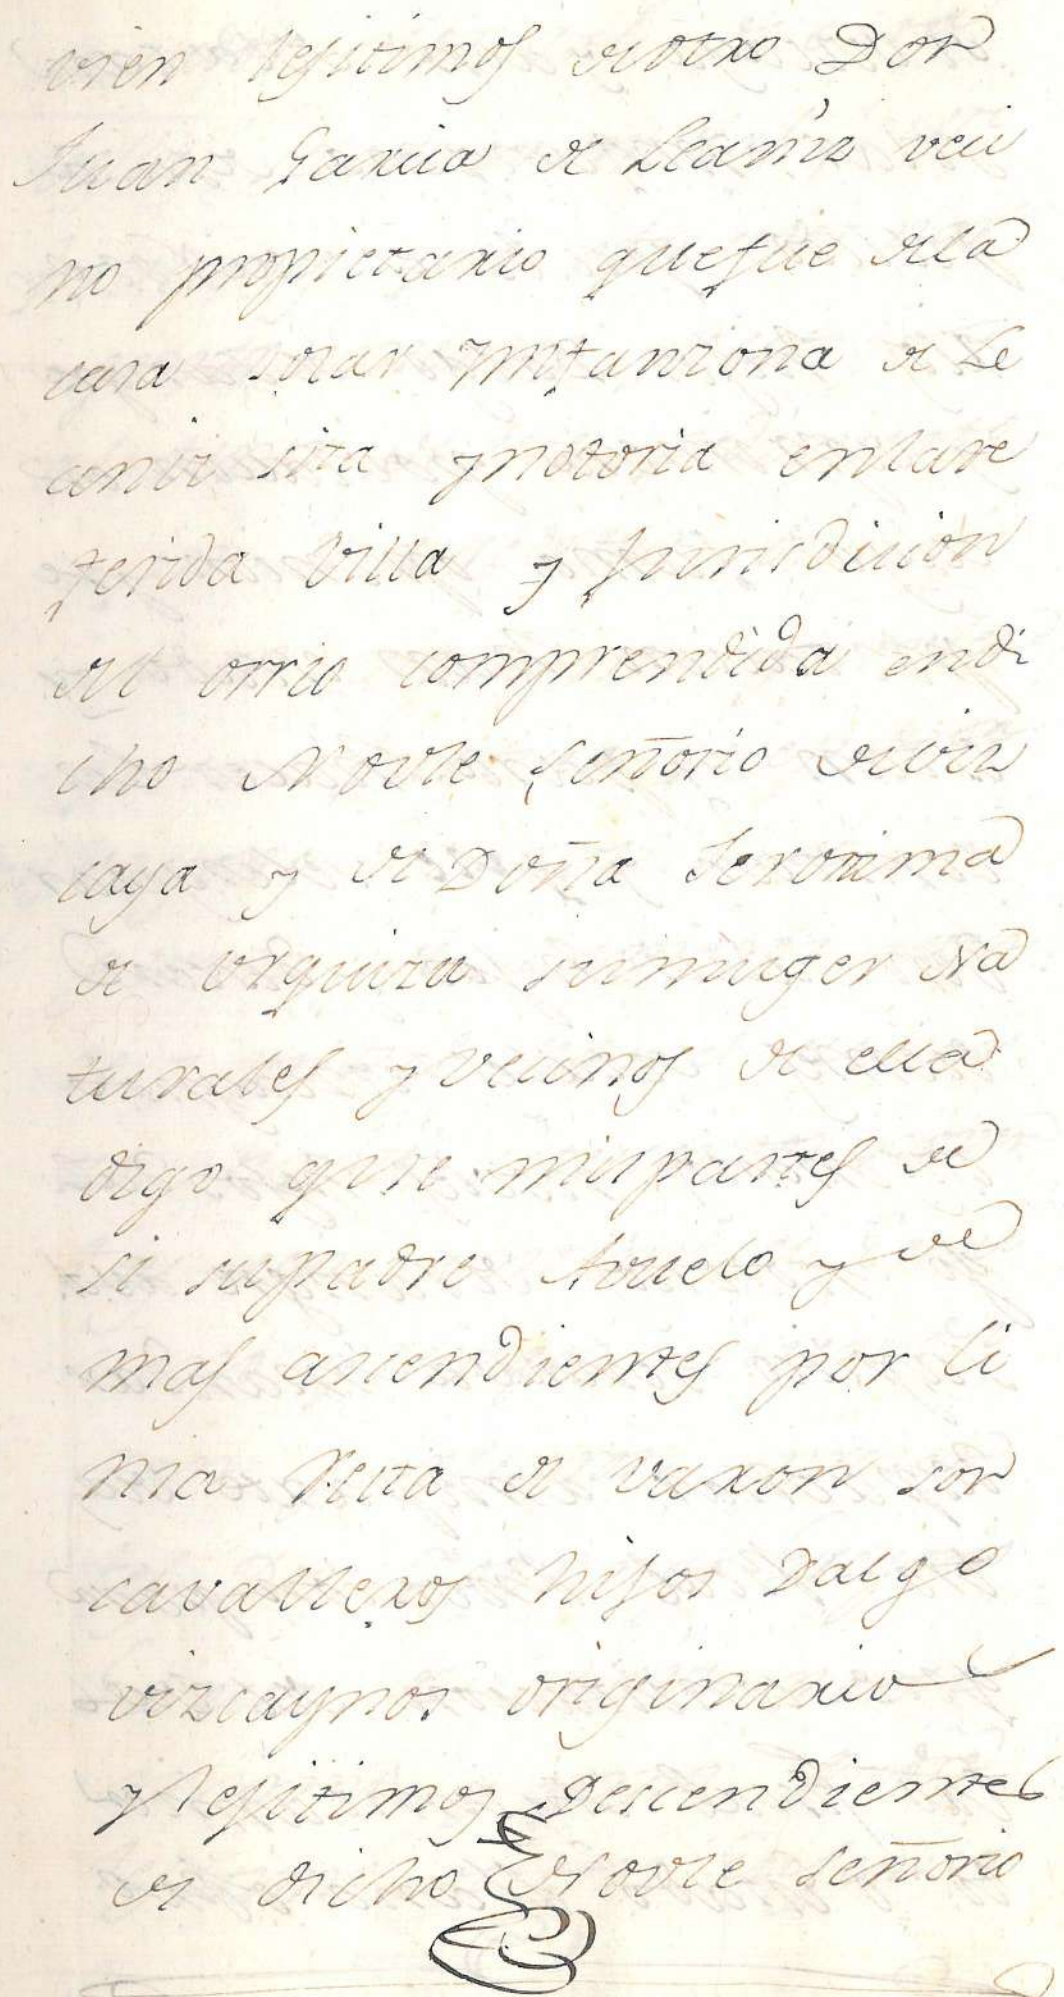 vien lejitimos de otro Don
Juan Garcia de Leaniz veci
no propietario que fue de la
casa solar Ynfanzona de Le
aniz sita y notoria en la re
ferida Villa y Jurisdicion
del orrio comprendida en di
cho Noble Señorio de viz
caya y de Doña Jeronima
de Urquiza su muger Na
turales y vecinos de ella
digo que mis partes de
si su padre Avuelo y de
mas ascendientes por li
nia Recta de varon son
cavalleros hijos Dalgo
vizcaynos originarios
y lejitimos Descendientes
de dicho Noble Señorio